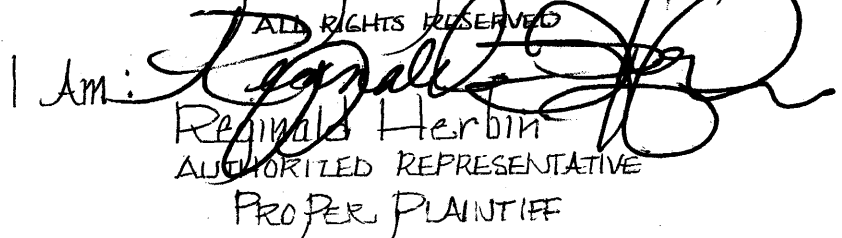 ALL RIGHTS RESERVED
I Am: Reginald Herbin
Reginald Herbin
AUTHORIZED REPRESENTATIVE
PROPER PLAINTIFF